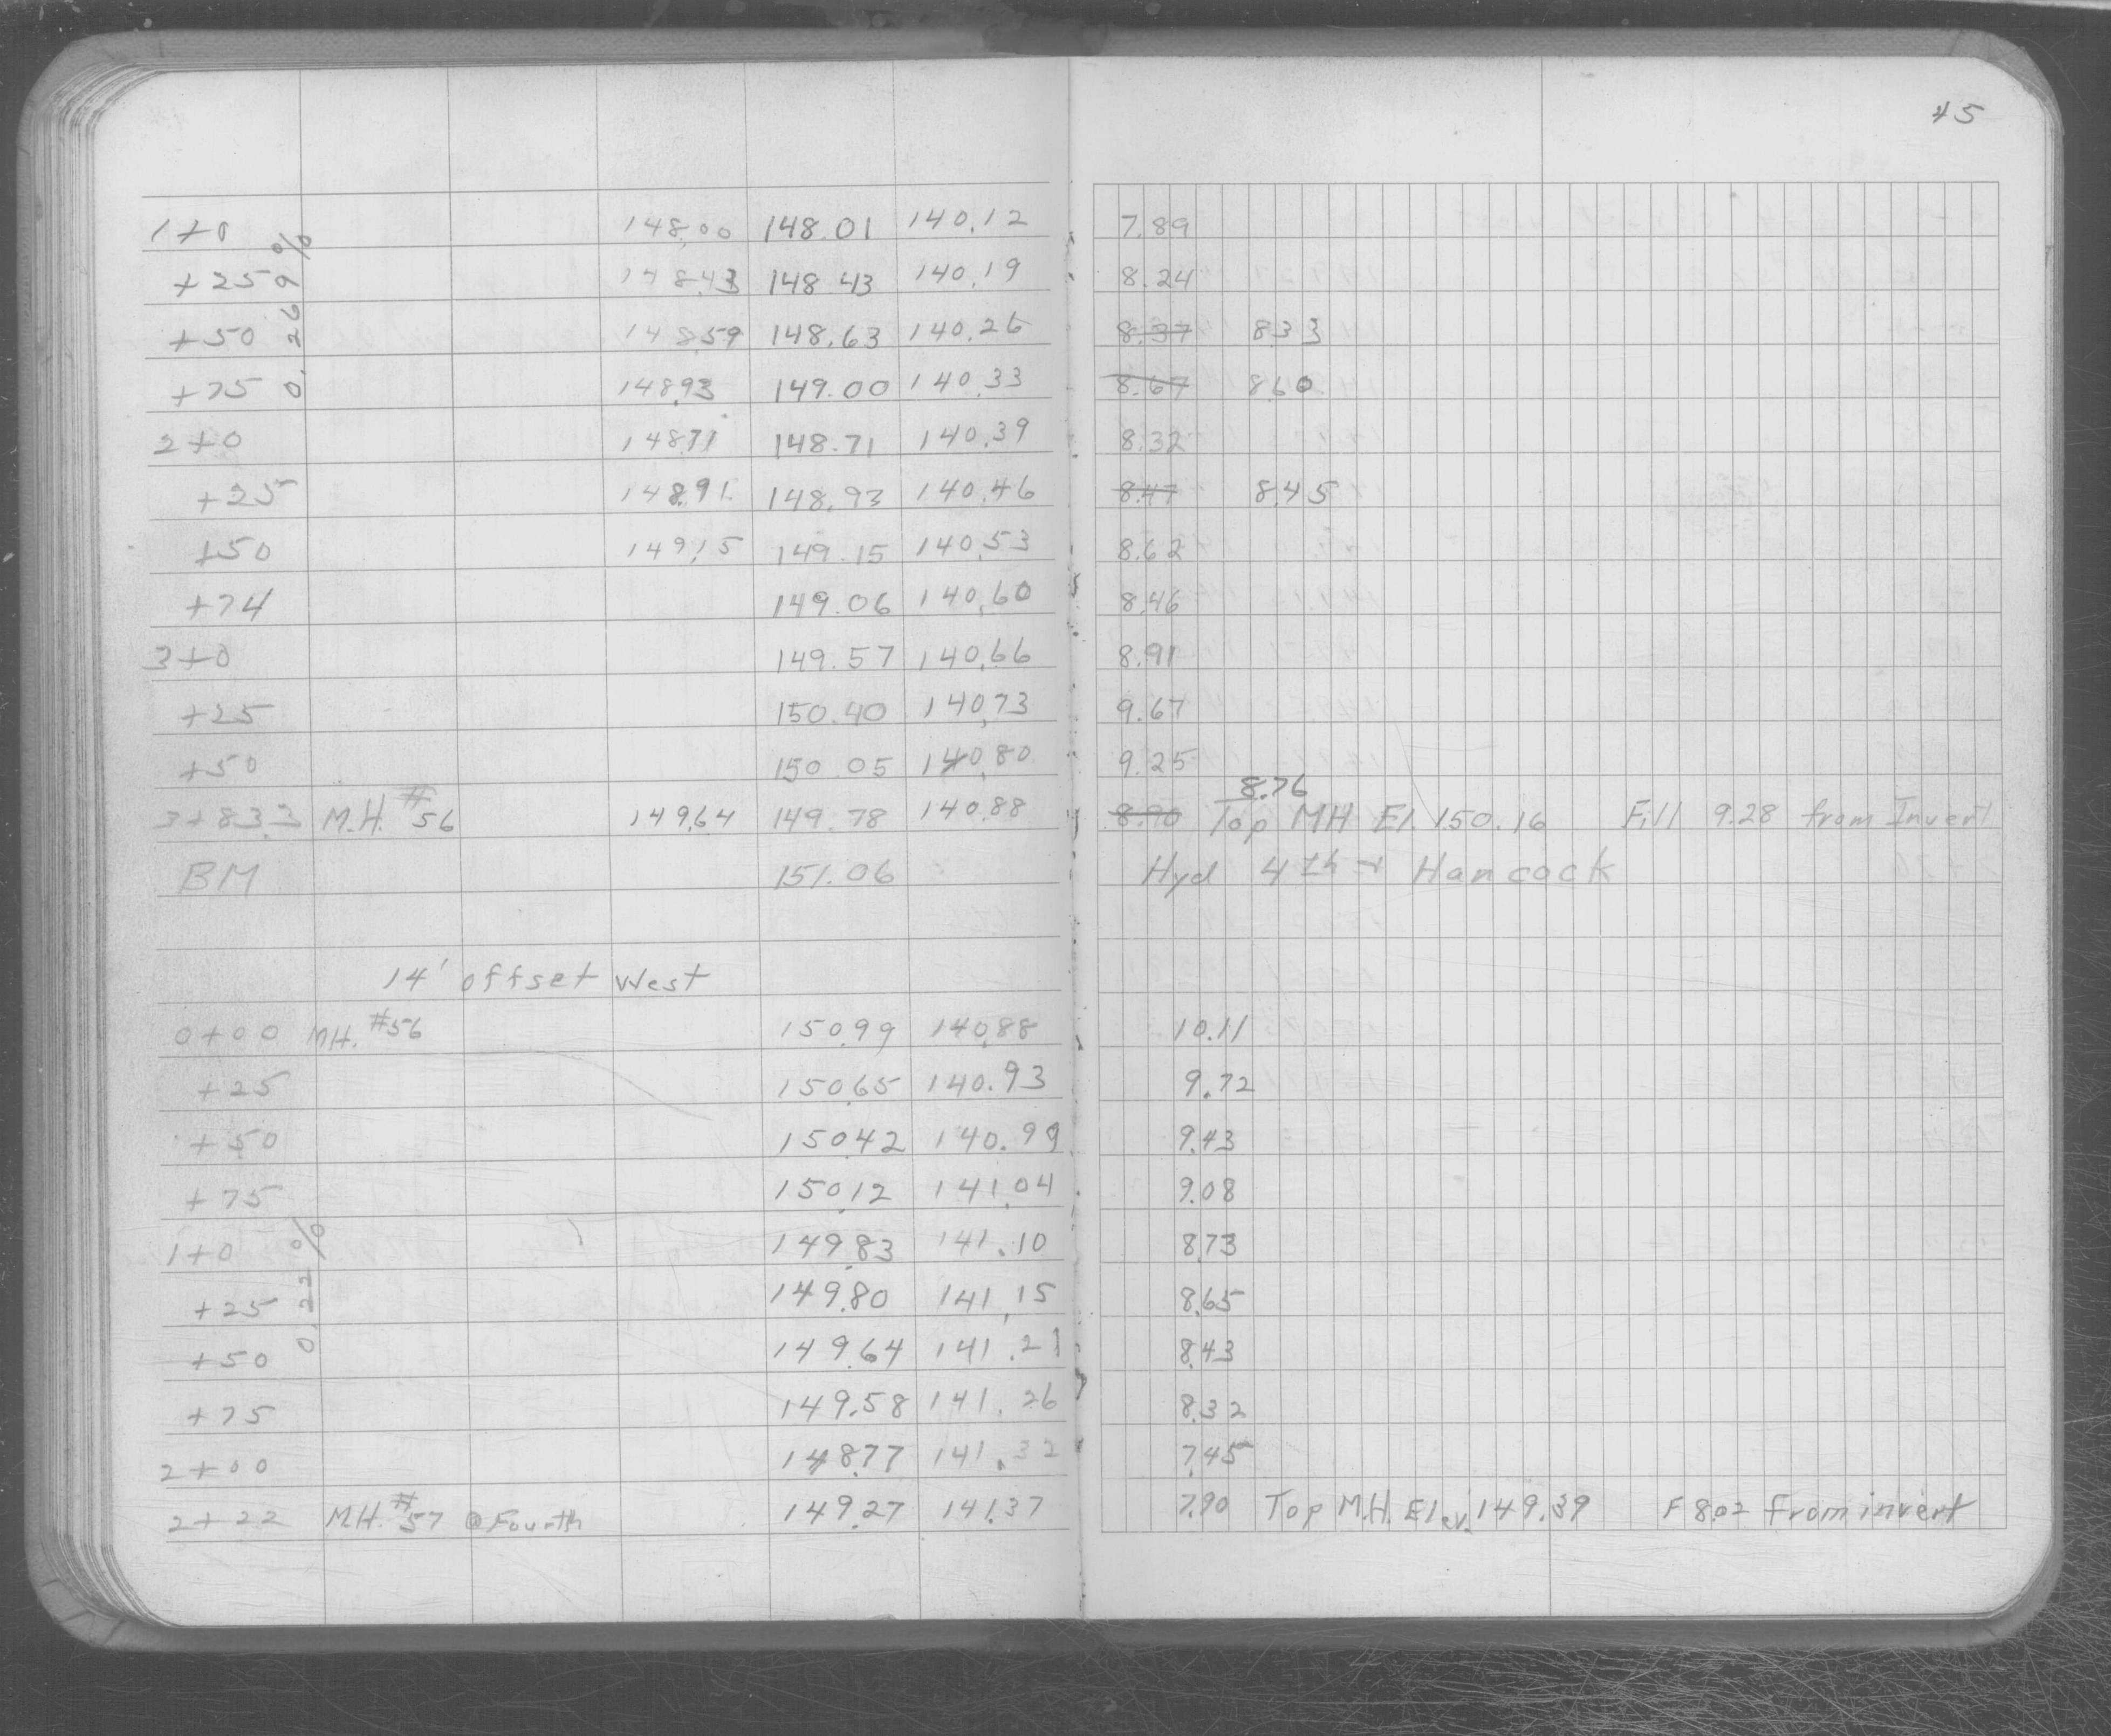 45
1+0 148.00 148.01 140.12 7.89
+25 148.43 148.43 140.19 8.24
+50 148.59 148.63 140.26 8.37 8.33
+75 148.93 149.00 140.33 8.67 8.60
0.269%
2+0 148.71 148.71 140.39 8.32
+25 148.91 148.93 140.46 8.47 8.45
+50 149.15 149.15 140.53 8.62
+74 149.06 140.60 8.46
3+0 149.57 140.66 8.91
+25 150.40 140.73 9.67
+50 150.05 140.80 9.25
8.76
3+83.3 M.H. #56 149.64 149.78 140.88 8.90 Top MH El. 150.16 Fill 9.28 from Invert
BM 151.06 Hyd 4th + Hancock
14' offset West
0+00 MH. #56 150.99 140.88 10.11
+25 150.65 140.93 9.72
+50 150.42 140.99 9.43
+75 150.12 141.04 9.08
1+0 149.83 141.10 8.73
0.22%
+25 149.80 141.15 8.65
+50 149.64 141.21 8.43
+75 149.58 141.26 8.32
2+00 148.77 141.32 7.45
2+22 M.H. #57 @ Fourth 149.27 141.37 7.90 Top M.H. Elev. 149.39 F 8.02 from invert